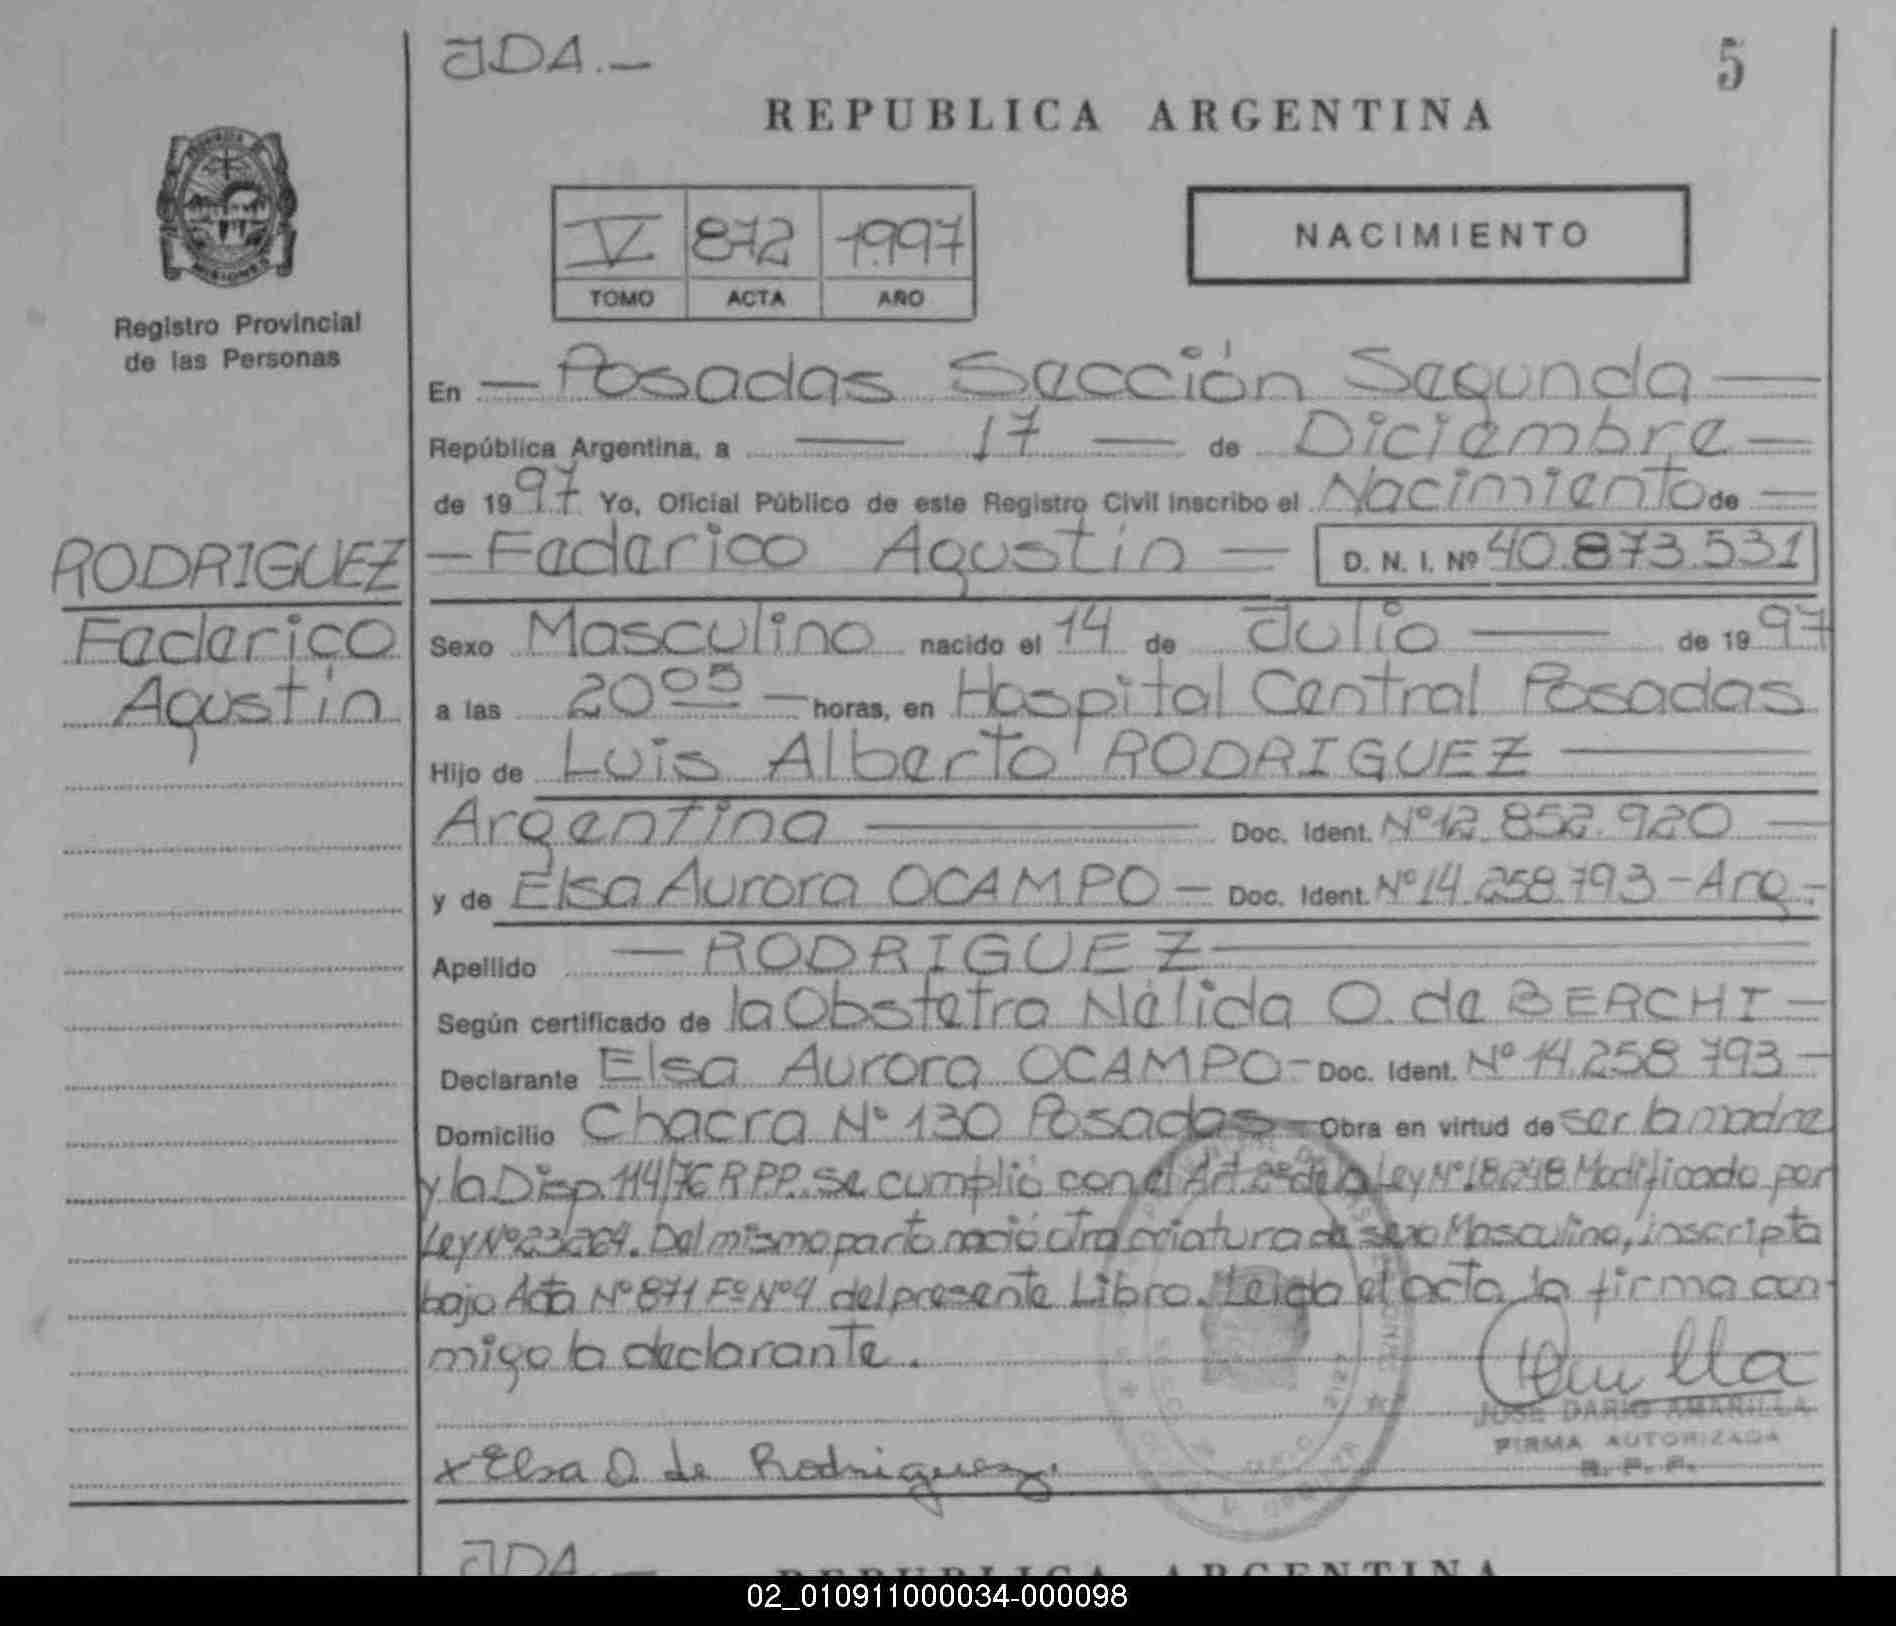 JDA.-
5
REPUBLICA ARGENTINA
MISIONES
Registro Provincial
de las Personas
V 872 1.997
TOMO ACTA AÑO
NACIMIENTO
En Posadas Sección Segunda
República Argentina, a 17 de Diciembre
de 1997 Yo, Oficial Público de este Registro Civil inscribo el Nacimiento de
RODRIGUEZ
Federico
Agustín
Federico Agustín D. N. I. Nº 40.873.531
Sexo Masculino nacido el 14 de Julio de 1997
a las 20 05 horas, en Hospital Central Posadas
Hijo de Luis Alberto RODRIGUEZ
Argentina Doc. Ident. Nº 12.852.920
y de Elsa Aurora OCAMPO - Doc. Ident. Nº 14.258.793 - Arg.-
Apellido RODRIGUEZ
Según certificado de la Obstetra Nélida O. de BERCHI -
Declarante Elsa Aurora OCAMPO - Doc. Ident. Nº 14.258.793 -
Domicilio Chacra Nº 130 Posadas Obra en virtud de ser la madre
y la Disp. 114/76 R.P.P. se cumplió con el Art. 2º de la Ley Nº 18.248 Modificado por
Ley Nº 23.264. Del mismo parto nació otra criatura de sexo Masculino, inscripta
bajo Acta Nº 871 Fº Nº 4 del presente Libro. Leida el acta la firma con-
migo la declarante.
JOSE DARIO AMARILLA
FIRMA AUTORIZADA
R. P. P.
x Elsa O. de Rodriguez.
JDA.-
REPUBLICA ARGENTINA
02_010911000034-000098